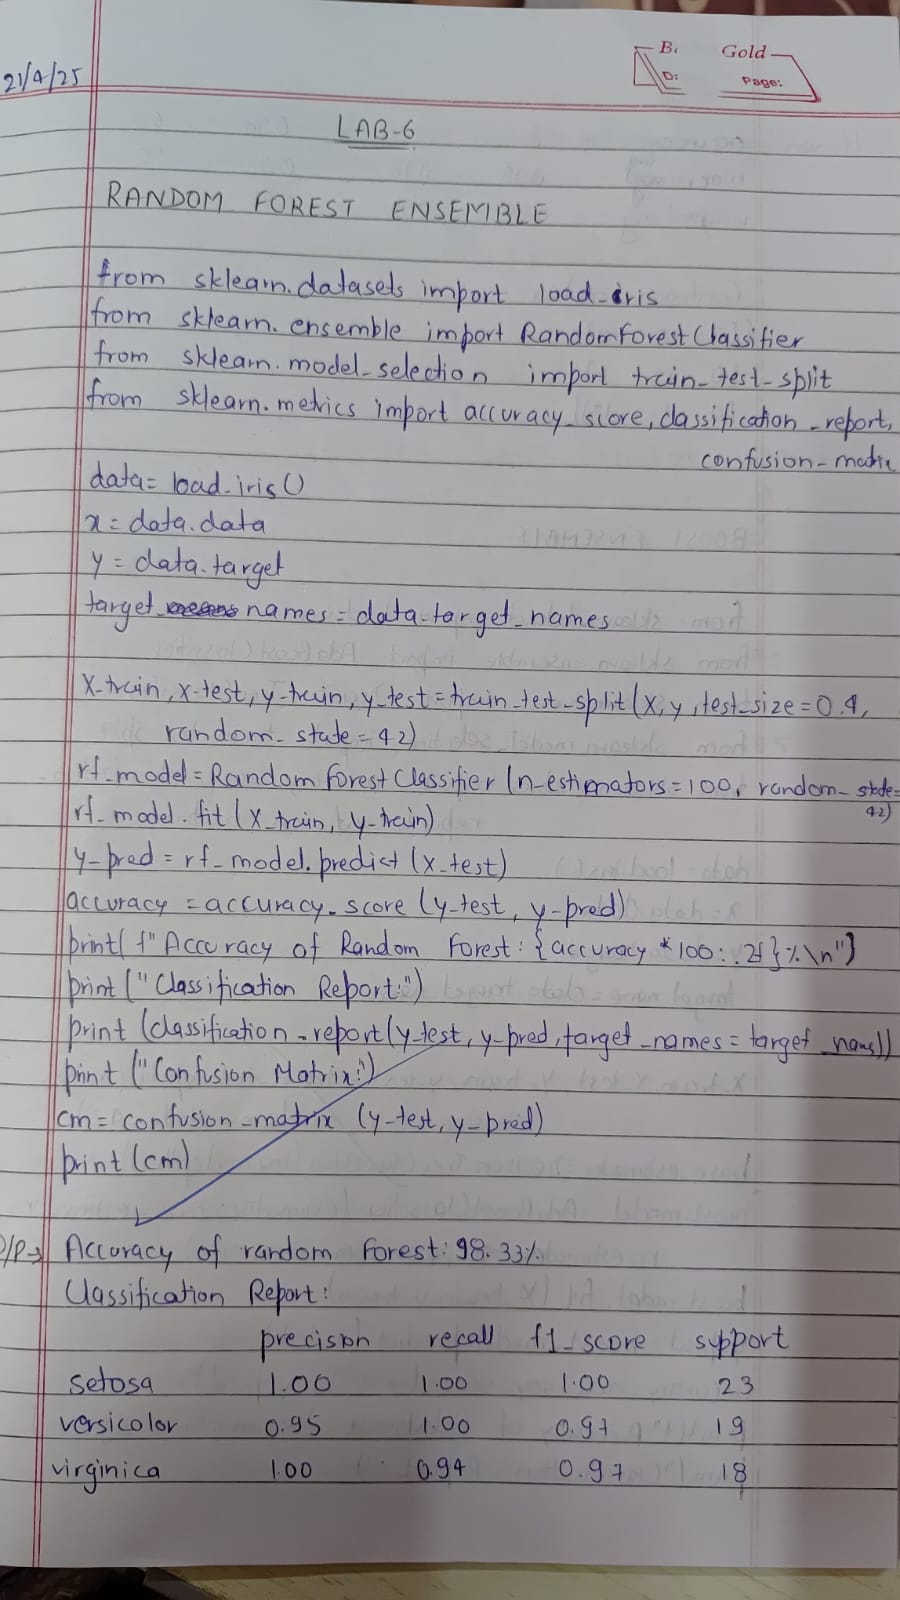 B. Gold
D: Page:
21/4/25
LAB-6
RANDOM FOREST ENSEMBLE
from sklearn.datasets import load_iris
from sklearn.ensemble import RandomForestClassifier
from sklearn.model_selection import train_test_split
from sklearn.metrics import accuracy_score, classification_report,
confusion_matrix
data = load_iris()
x = data.data
y = data.target
target_names = data.target_names
X_train, x_test, y_train, y_test = train_test_split(X, y, test_size = 0.4,
random_state = 42)
rf_model = RandomForestClassifier(n_estimators = 100, random_state =
42)
rf_model.fit(X_train, y_train)
y_pred = rf_model.predict(X_test)
accuracy = accuracy_score(y_test, y_pred)
print(f"Accuracy of Random Forest: {accuracy * 100:.2f}%\n")
print("Classification Report:")
print(classification_report(y_test, y_pred, target_names = target_names))
print("Confusion Matrix:")
cm = confusion_matrix(y_test, y_pred)
print(cm)
O/P→ Accuracy of random forest: 98.33%
Classification Report:
precision recall f1_score support
setosa 1.00 1.00 1.00 23
versicolor 0.95 1.00 0.97 19
virginica 1.00 0.94 0.97 18